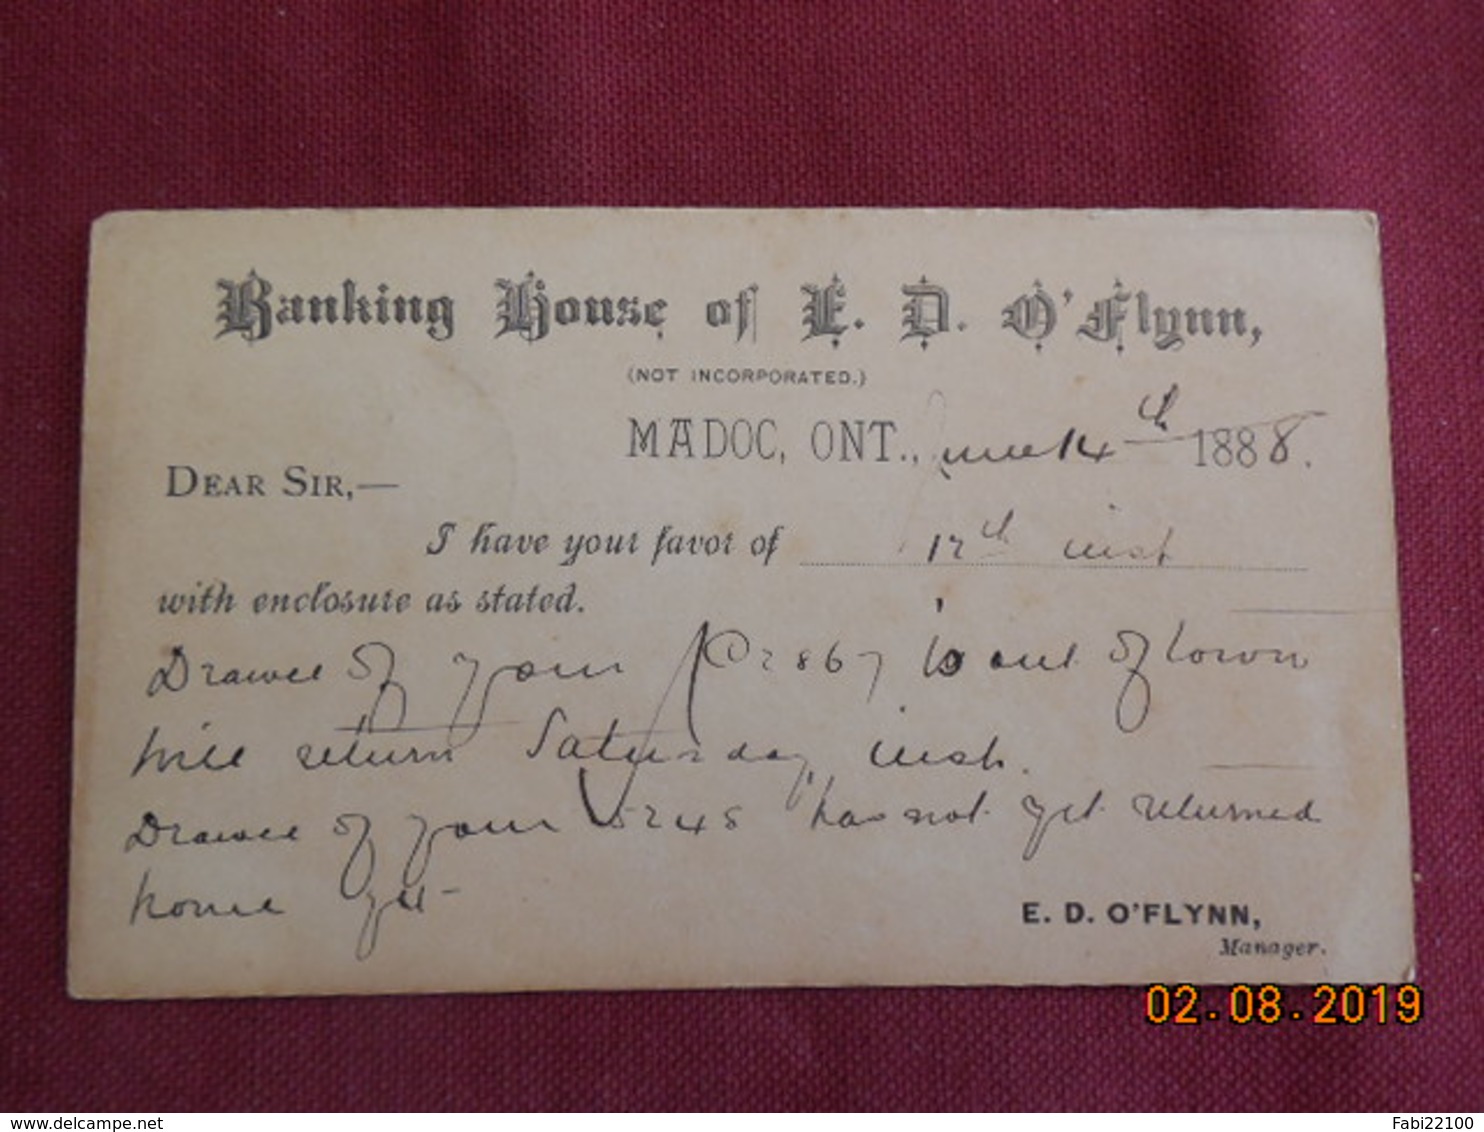 Banking House of E. D. O'Flynn,
(NOT INCORPORATED.)
MADOC, ONT., June 14th 1888.
DEAR SIR,—
I have your favor of 12th inst
with enclosure as stated.
Drawee of your 2867 is out of town
will return Saturday inst.
Drawee of your 5248 has not yet returned
home yet
E. D. O'FLYNN,
Manager.
02.08.2019
www.delcampe.net
Fabi22100